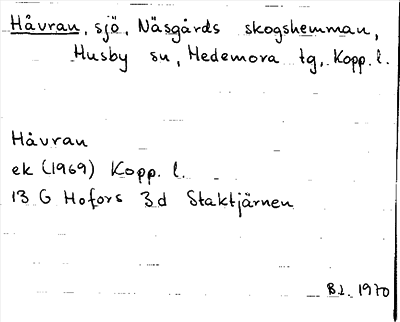 Håvran, sjö, Näsgårds skogshemman,
Husby sn, Hedemora tg, Kopp. l.
Håvran
ek (1969) Kopp. l.
13 G Hofors 3d Staktjärnen
B.L. 1970